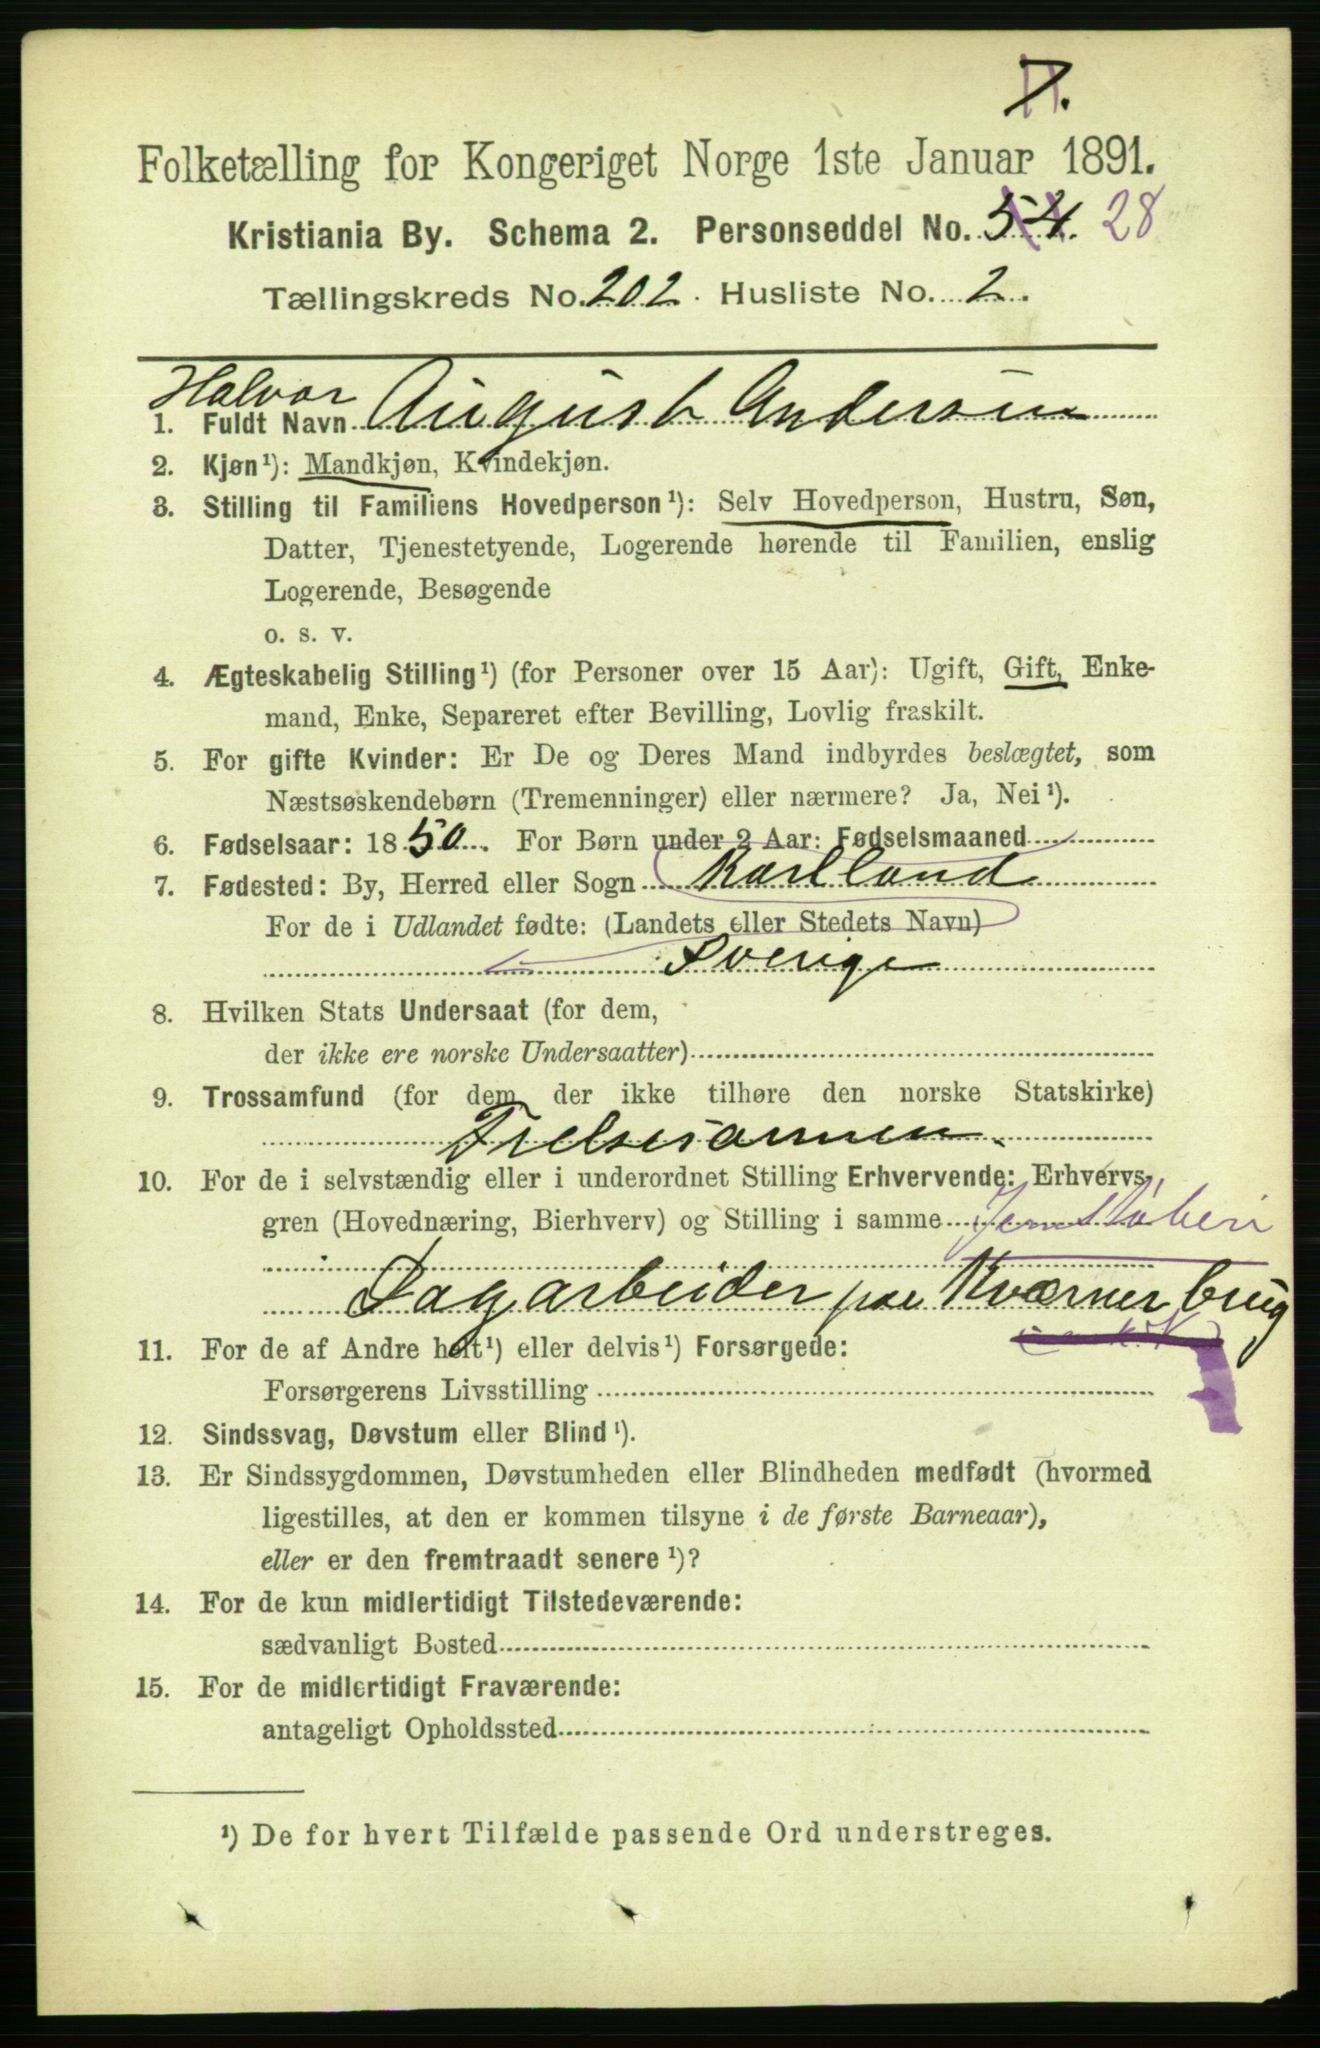 7.
Folketælling for Kongeriget Norge 1ste Januar 1891.
Kristiania By. Schema 2. Personseddel No. 54. 28
Tællingskreds No. 202. Husliste No. 2.
Halvor
1. Fuldt Navn August Andersen
2. Kjøn¹): Mandkjøn, Kvindekjøn.
3. Stilling til Familiens Hovedperson¹): Selv Hovedperson, Hustru, Søn,
Datter, Tjenestetyende, Logerende hørende til Familien, enslig
Logerende, Besøgende
o. s. v.
4. Ægteskabelig Stilling¹) (for Personer over 15 Aar): Ugift, Gift, Enke-
mand, Enke, Separeret efter Bevilling, Lovlig fraskilt.
5. For gifte Kvinder: Er De og Deres Mand indbyrdes beslægtet, som
Næstsøskendebørn (Tremenninger) eller nærmere? Ja, Nei¹).
6. Fødselsaar: 1850. For Børn under 2 Aar: Fødselsmaaned
7. Fødested: By, Herred eller Sogn Karlland
For de i Udlandet fødte: (Landets eller Stedets Navn)
Sverige
8. Hvilken Stats Undersaat (for dem,
der ikke ere norske Undersaatter)
9. Trossamfund (for dem der ikke tilhøre den norske Statskirke)
Frelsesarmeen.
10. For de i selvstændig eller i underordnet Stilling Erhvervende: Erhvervs-
gren (Hovednæring, Bierhverv) og Stilling i samme Jernstøberi
Dagarbeider paa Kværner brug
11. For de af Andre helt¹) eller delvis¹) Forsørgede:
Forsørgerens Livsstilling
12. Sindssvag, Døvstum eller Blind¹).
13. Er Sindssygdommen, Døvstumheden eller Blindheden medfødt (hvormed
ligestilles, at den er kommen tilsyne i de første Barneaar),
eller er den fremtraadt senere¹)?
14. For de kun midlertidigt Tilstedeværende:
sædvanligt Bosted
15. For de midlertidigt Fraværende:
antageligt Opholdssted
¹) De for hvert Tilfælde passende Ord understreges.